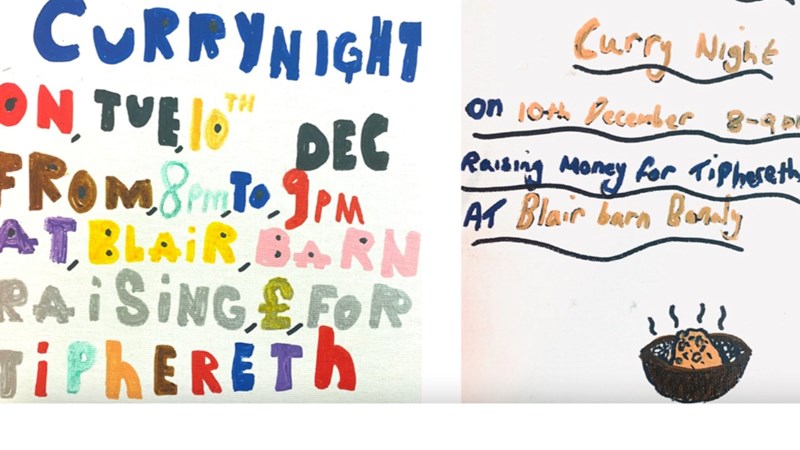 CURRYNIGHT
ON, TUE, 10TH DEC
FROM, 8PM, TO, 9PM
AT, BLAiR, BARN
RAiSiNG, £, FOR
TiPhERETh
Curry Night
on 10th December 8-9pm
Raising Money for Tiphereth
AT Blair barn Bonaly